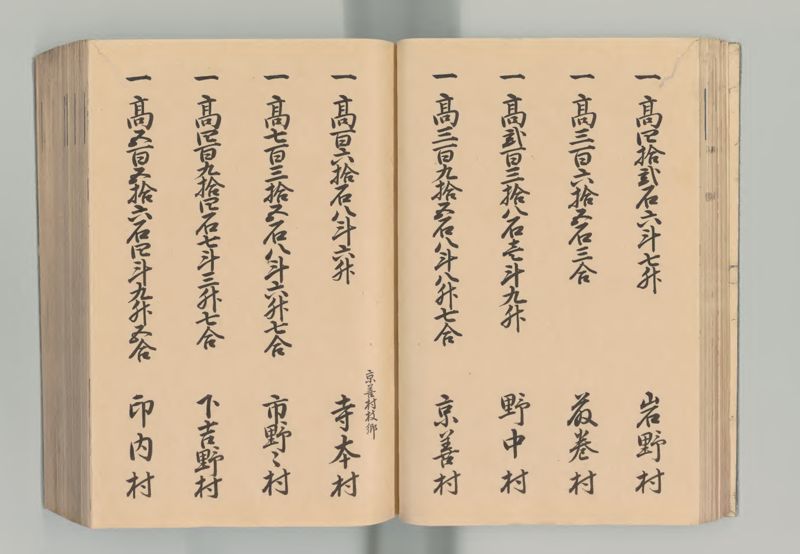 一 高四拾弐石六斗七升 岩野村
一 高三百六拾五石三合 荻巻村
一 高弐百三拾八石壱斗九升 野中村
一 高三百九拾五石八斗八升七合 京善村
京善村枝郷
一 高百六拾石八斗六升 寺本村
一 高七百三拾五石八斗六升七合 市野々村
一 高四百九拾四石七斗三升七合 下吉野村
一 高五百五拾六石四斗九升五合 印内村